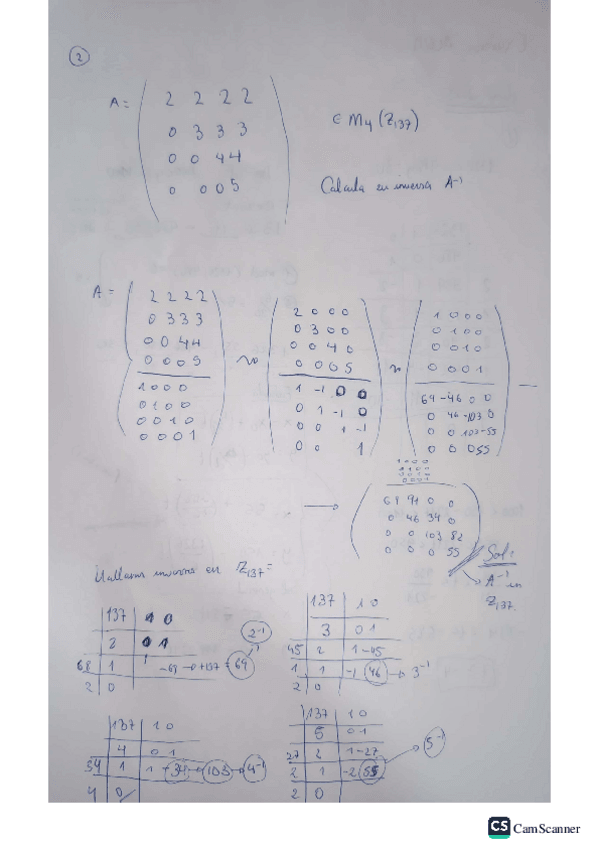 2
A = 2 2 2 2
0 3 3 3
0 0 4 4
0 0 0 5
∈ M4 (Z137)
Calcula su inversa A-1
A = 2 2 2 2
0 3 3 3
0 0 4 4
0 0 0 5
1 0 0 0
0 1 0 0
0 0 1 0
0 0 0 1
~
2 0 0 0
0 3 0 0
0 0 4 0
0 0 0 5
1 -1 0 0
0 1 -1 0
0 0 1 -1
0 0 1
~
1 0 0 0
0 1 0 0
0 0 1 0
0 0 0 1
69 -46 0 0
0 46 -103 0
0 0 103 -55
0 0 0 55
→
69 91 0 0
0 46 34 0
0 0 103 82
0 0 0 55
Sol:
A-1 en
Z137.
Hallamos inversos en Z137 =
137 1 0
2 0 1
68 1 -69 → 69
2 0
2-1
137 1 0
3 0 1
45 2 1 -45
1 1 -1 46 → 3-1
2 0
137 1 0
4 0 1
34 1 1 -34 → 103 → 4-1
4 0
137 1 0
5 0 1
27 2 1 -27
2 1 -2 55
2 0
5-1
CS CamScanner